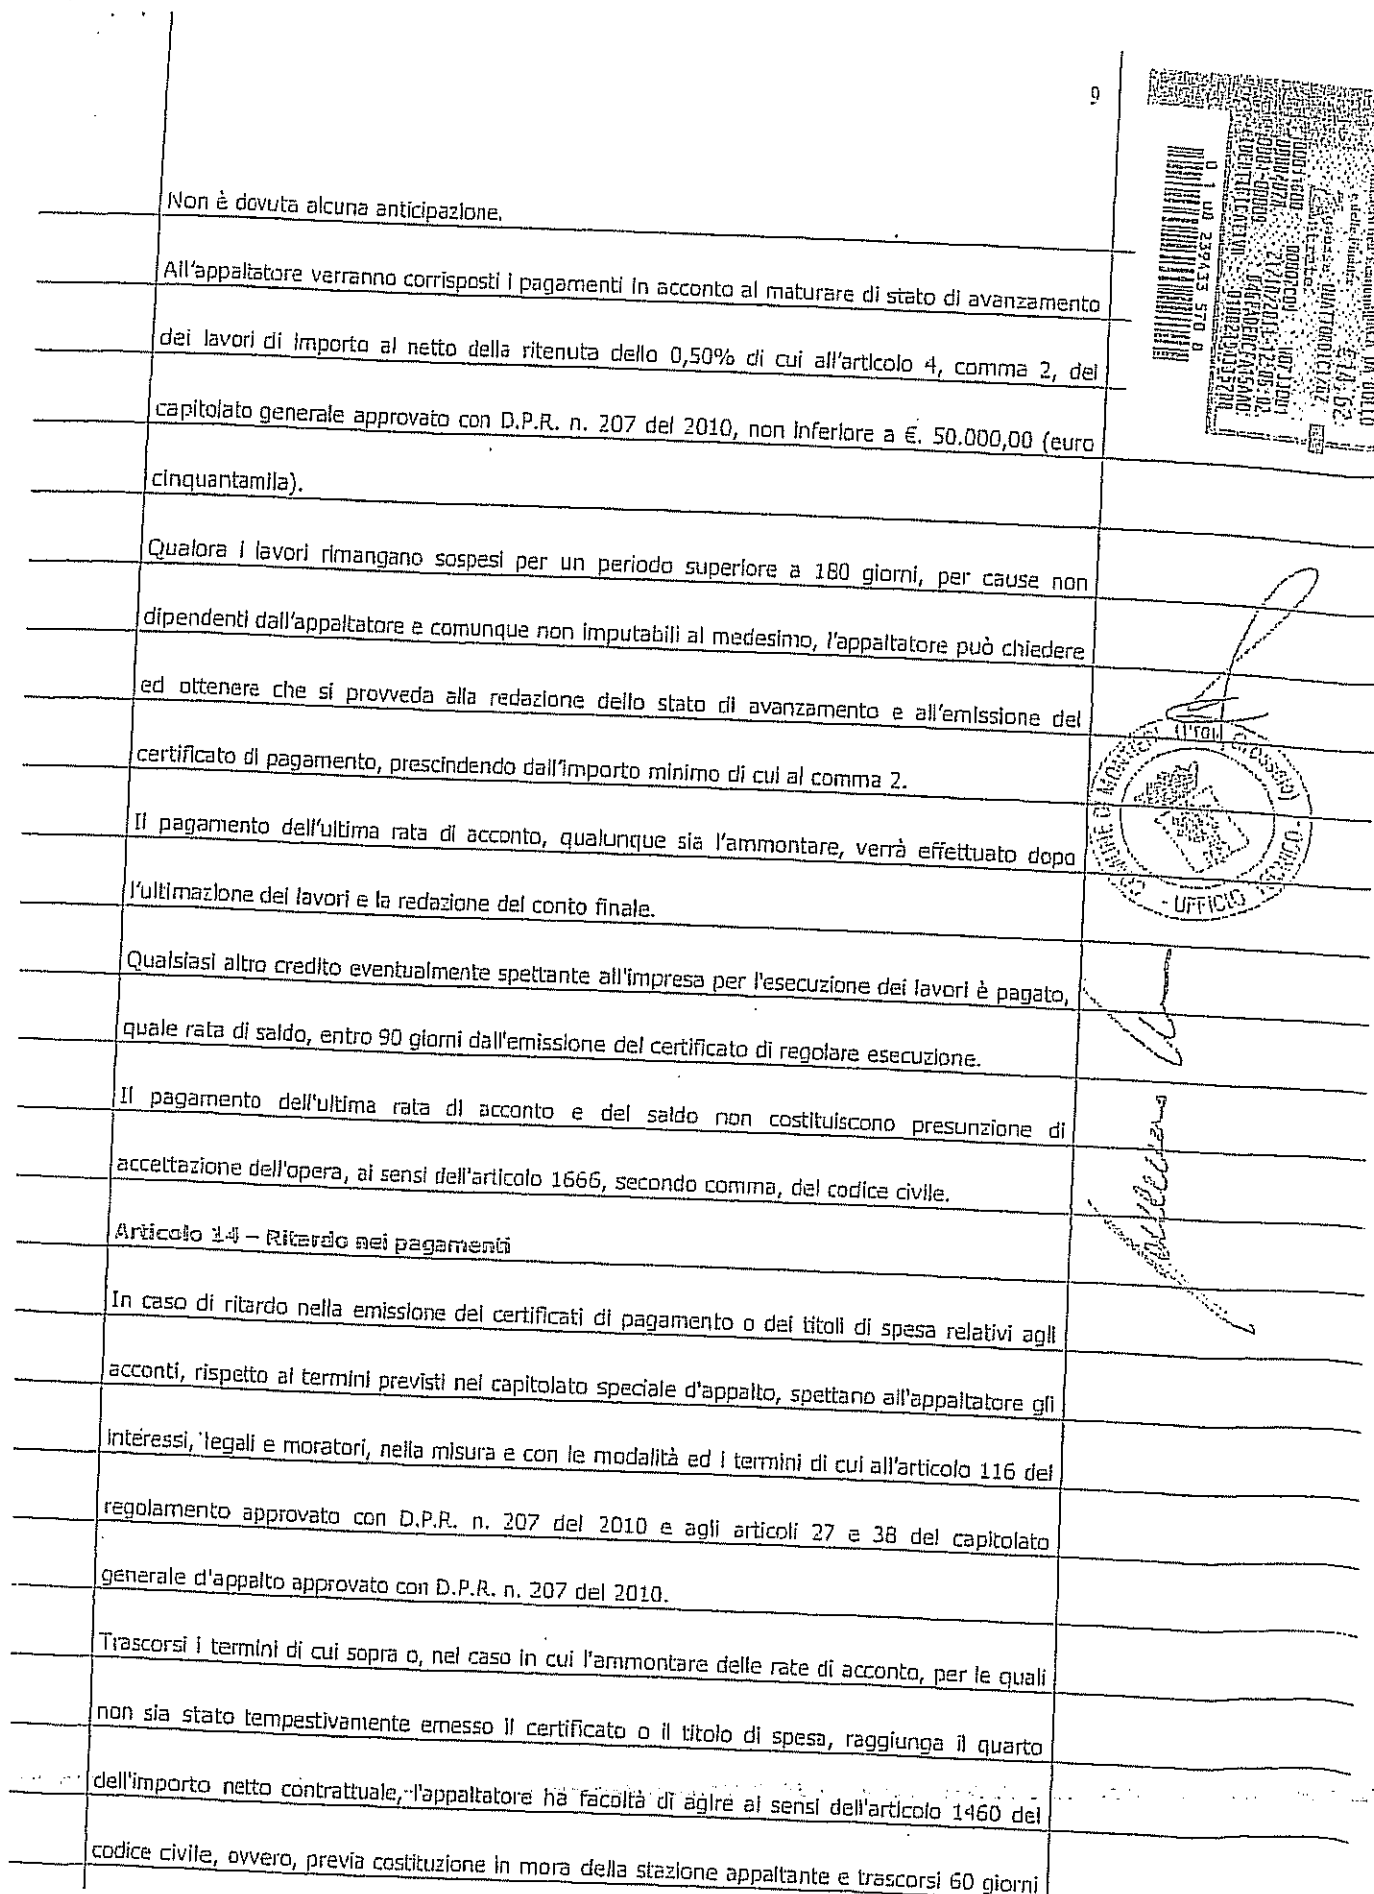 9
Non è dovuta alcuna anticipazione.
All'appaltatore verranno corrisposti i pagamenti in acconto al maturare di stato di avanzamento
dei lavori di importo al netto della ritenuta dello 0,50% di cui all'articolo 4, comma 2, del
capitolato generale approvato con D.P.R. n. 207 del 2010, non inferiore a €. 50.000,00 (euro
cinquantamila).
Qualora i lavori rimangano sospesi per un periodo superiore a 180 giorni, per cause non
dipendenti dall'appaltatore e comunque non imputabili al medesimo, l'appaltatore può chiedere
ed ottenere che si provveda alla redazione dello stato di avanzamento e all'emissione del
certificato di pagamento, prescindendo dall'importo minimo di cui al comma 2.
Il pagamento dell'ultima rata di acconto, qualunque sia l'ammontare, verrà effettuato dopo
l'ultimazione dei lavori e la redazione del conto finale.
Qualsiasi altro credito eventualmente spettante all'impresa per l'esecuzione dei lavori è pagato,
quale rata di saldo, entro 90 giorni dall'emissione del certificato di regolare esecuzione.
Il pagamento dell'ultima rata di acconto e del saldo non costituiscono presunzione di
accettazione dell'opera, ai sensi dell'articolo 1666, secondo comma, del codice civile.
Articolo 14 – Ritardo nei pagamenti
In caso di ritardo nella emissione dei certificati di pagamento o dei titoli di spesa relativi agli
acconti, rispetto ai termini previsti nel capitolato speciale d'appalto, spettano all'appaltatore gli
interessi, legali e moratori, nella misura e con le modalità ed i termini di cui all'articolo 116 del
regolamento approvato con D.P.R. n. 207 del 2010 e agli articoli 27 e 38 del capitolato
generale d'appalto approvato con D.P.R. n. 207 del 2010.
Trascorsi i termini di cui sopra o, nel caso in cui l'ammontare delle rate di acconto, per le quali
non sia stato tempestivamente emesso il certificato o il titolo di spesa, raggiunga il quarto
dell'importo netto contrattuale, l'appaltatore ha facoltà di agire ai sensi dell'articolo 1460 del
codice civile, ovvero, previa costituzione in mora della stazione appaltante e trascorsi 60 giorni
€14,62
COMUNE DI
(Prov.
UFFICIO